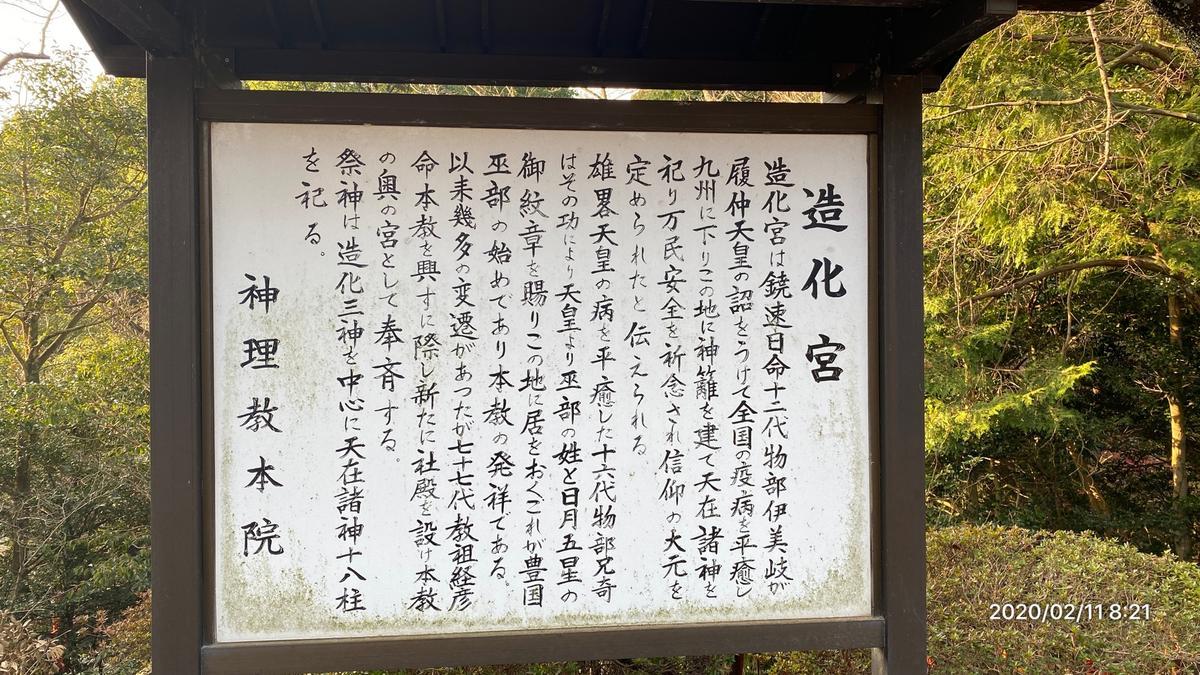 造化宮
造化宮は饒速日命十二代物部伊美岐が
履仲天皇の詔をうけて全国の疫病を平癒し
九州に下りこの地に神籬を建て天在諸神を
祀り万民安全を祈念され信仰の大元を
定められたと伝えられる
雄畧天皇の病を平癒した十六代物部兄奇
はその功により天皇より巫部の姓と日月五星の
御紋章を賜りこの地に居をおくこれが豊国
巫部の始めであり本教の発祥である。
以来幾多の変遷があつたが七十七代教祖経彦
命本教を興すに際し新たに社殿を設け本教
の奥の宮として奉斉する。
祭神は造化三神を中心に天在諸神十八柱
を祀る。
神理教本院
2020/02/11 8:21